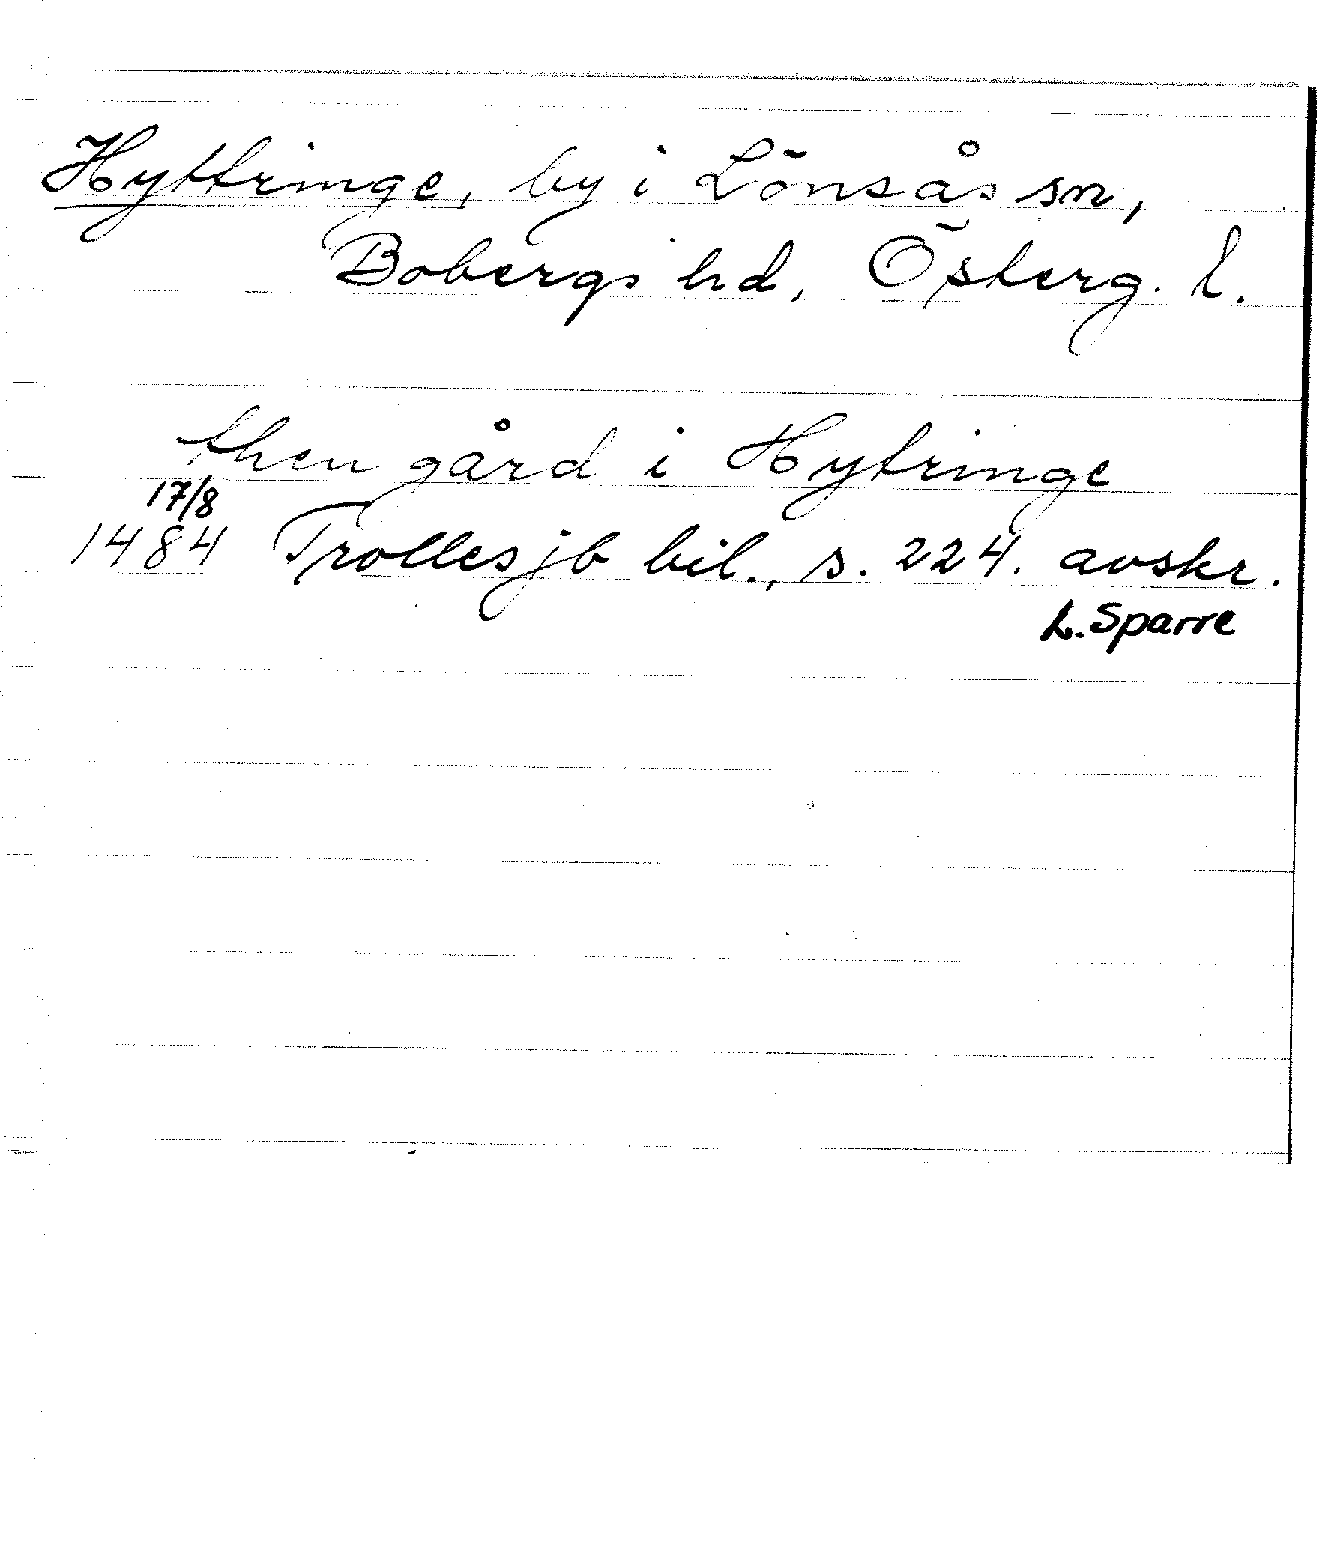 Hyttringe, by i Lönsås sn,
Bobergs hd, Österg. l.
then gård i Hytringe
17/8
1484 Trolles jb bil., s. 224. avskr.
L. Sparre